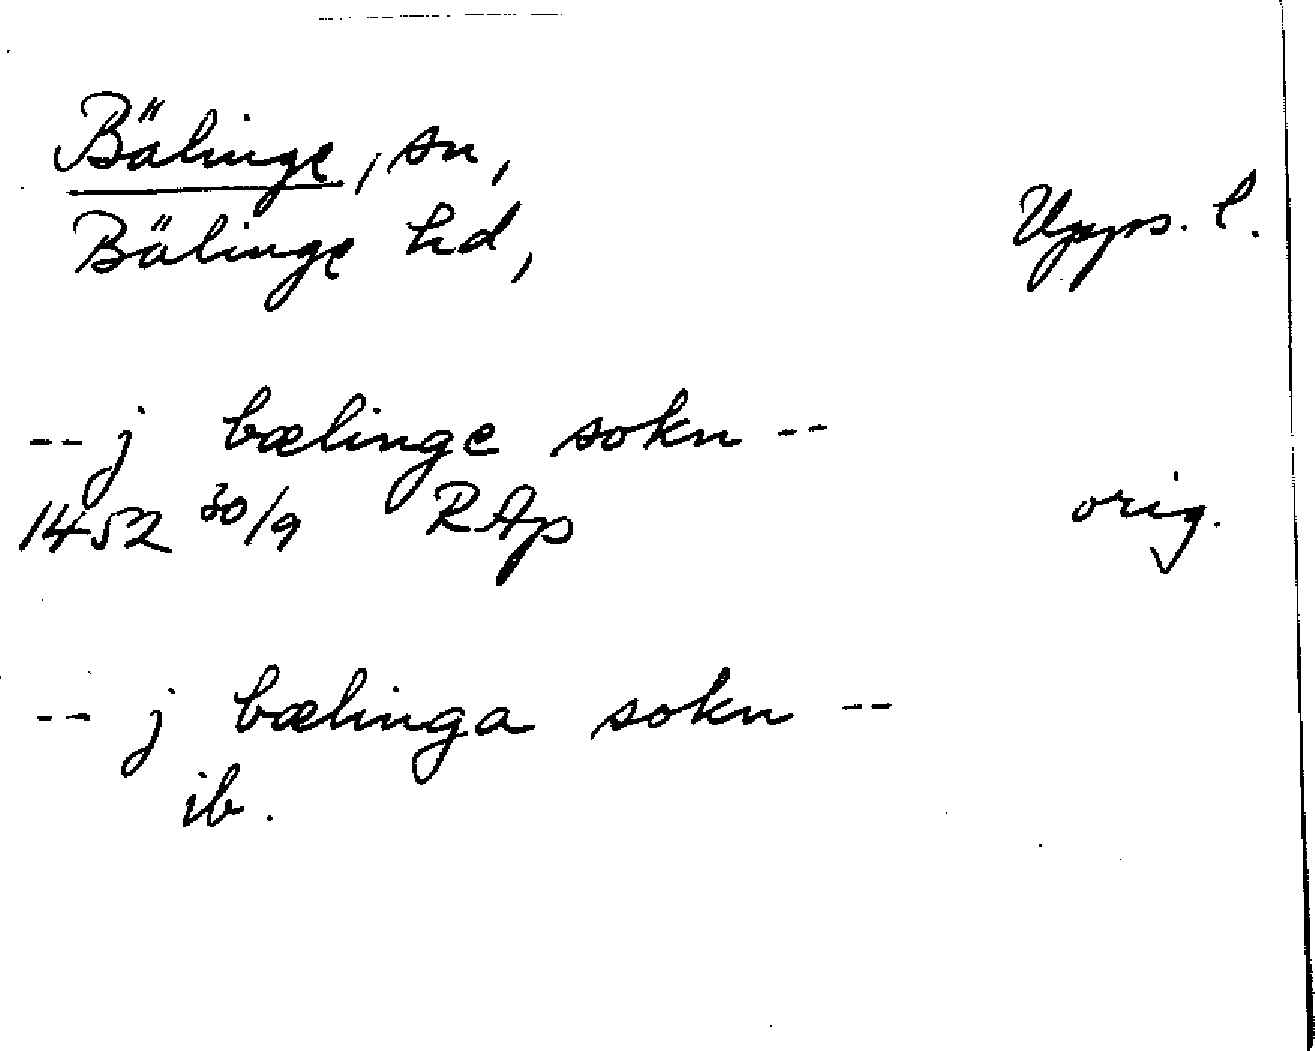 Bälinge, sn,
Bälinge hd, Upps. l.
-- j bælinge sokn --
1452 30/9 RAp orig.
-- j bælinga sokn --
ib.